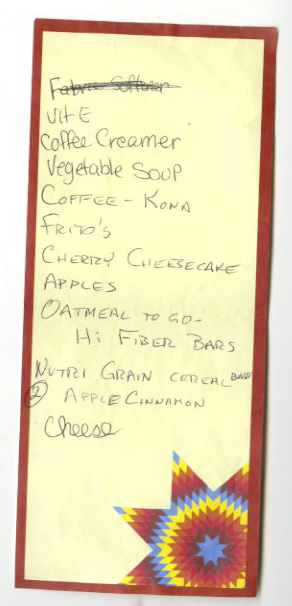 Fabric Softener
Vit E
Coffee Creamer
Vegetable SOUP
COFFEE - KONA
FRITO'S
CHERRY CHEESECAKE
APPLES
OATMEAL TO GO -
Hi FIBER BARS
NUTRI GRAIN CEREAL BARS
(2) APPLE CINNAMON
Cheese